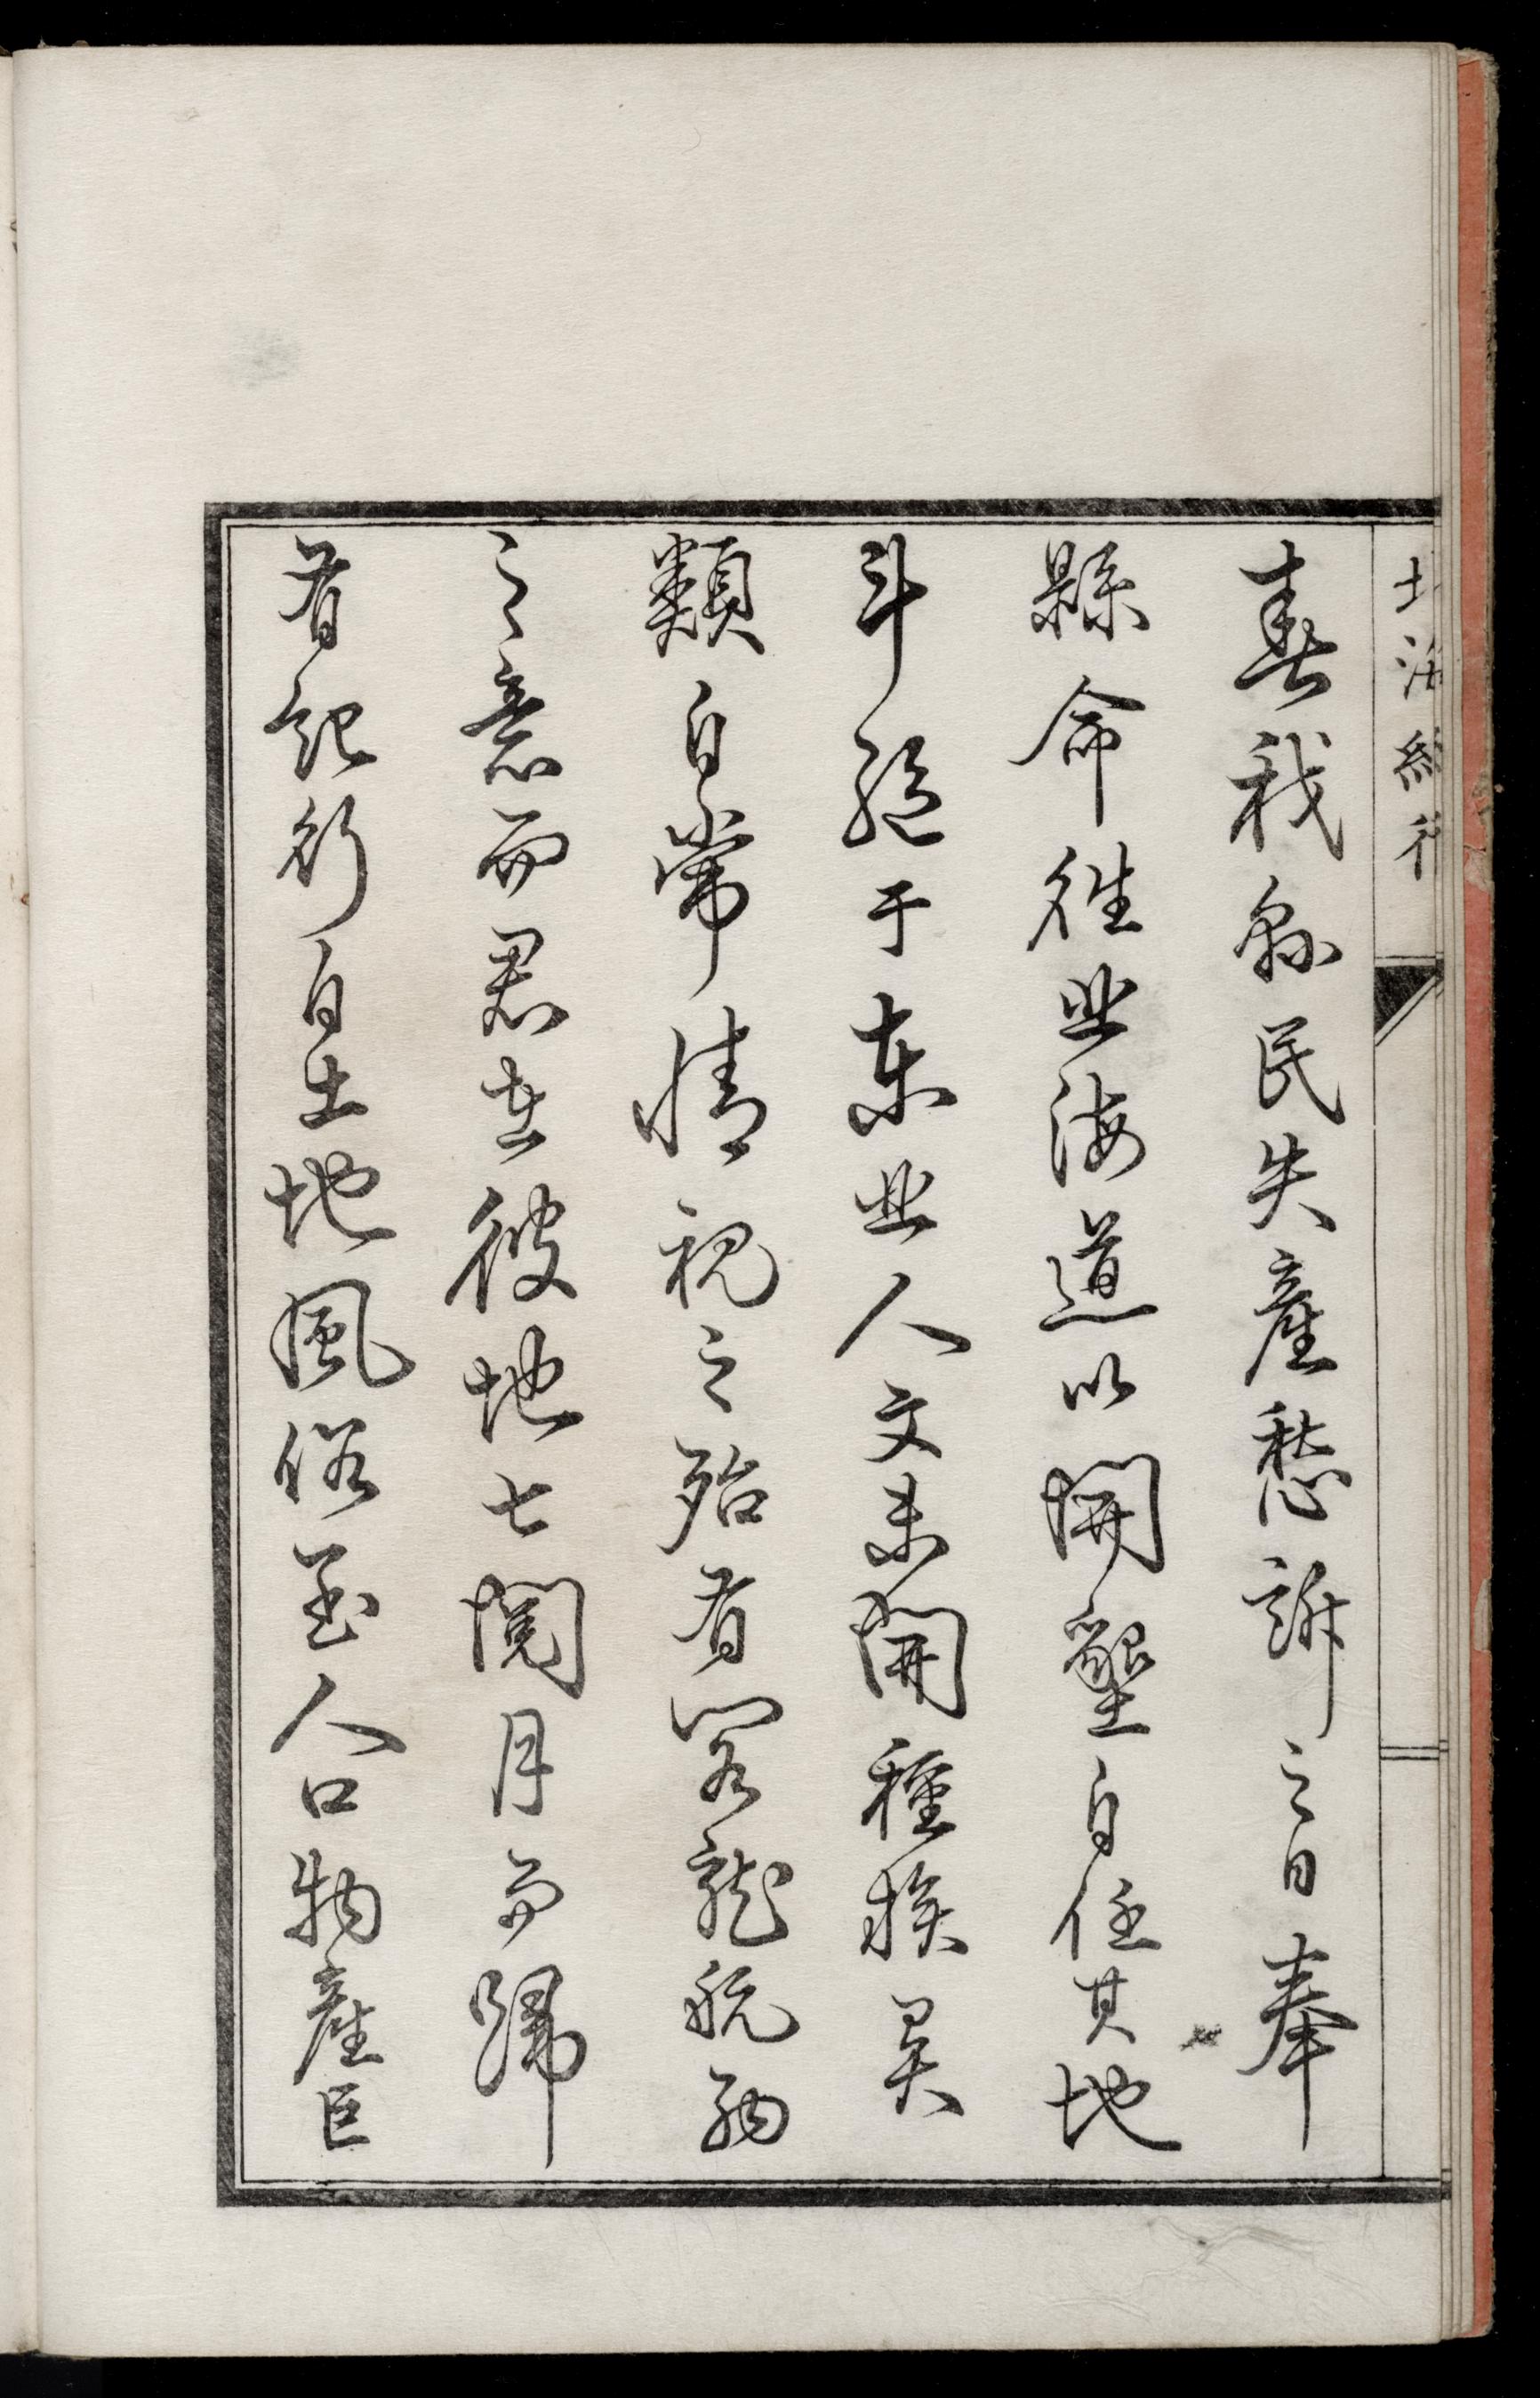 北海紀行
春我縣民失產愁訴之日奉
縣命往北海道以開墾自任其地
斗絕于東北人文未開種族異
類自常情視之殆有寄龍航
之意而君在彼地七閱月而歸
有紀行自土地風俗至人口物產巨